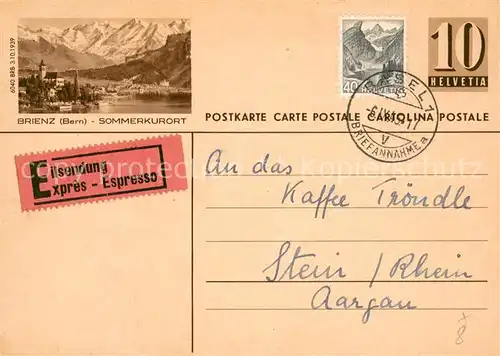 6040 BRB 3.10.1939
BRIENZ (Bern) - SOMMERKURORT
40
10
HELVETIA
POSTKARTE CARTE POSTALE CARTOLINA POSTALE
BASEL 7
BRIEFANNAHME a
Eilsendung
Exprès - Espresso
An das
Kaffee Tröndle
Stein / Rhein
Aargau
8